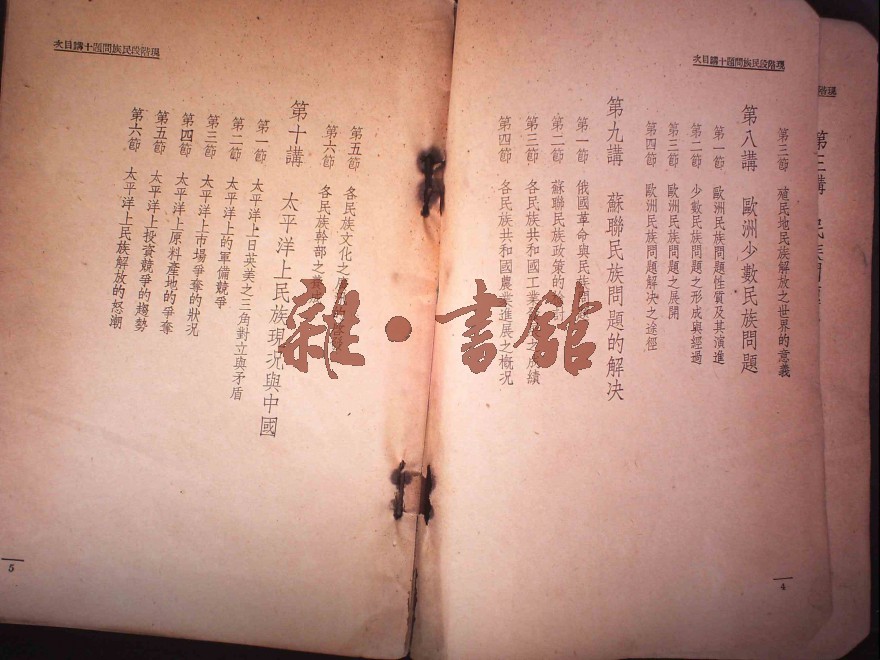 現階段民族問題十講目次
第三節 殖民地民族解放之世界的意義
第八講 歐洲少數民族問題
第一節 歐洲民族問題性質及其演進
第二節 少數民族問題之形成與經過
第三節 歐洲民族問題之展開
第四節 歐洲民族問題解决之途徑
第九講 蘇聯民族問題的解决
第一節 俄國革命與民族
第二節 蘇聯民族政策的
第三節 各民族共和國工業
第四節 各民族共和國農業進展之概况
4
現階段民族問題十講目次
第五節 各民族文化之
第六節 各民族幹部之
第十講 太平洋上民族現况與中國
第一節 太平洋上日英美之三角對立與矛盾
第二節 太平洋上的軍備競爭
第三節 太平洋上市場爭奪的狀况
第四節 太平洋上原料產地的爭奪
第五節 太平洋上投資競爭的趨勢
第六節 太平洋上民族解放的怒潮
5
第三講
雜·書館